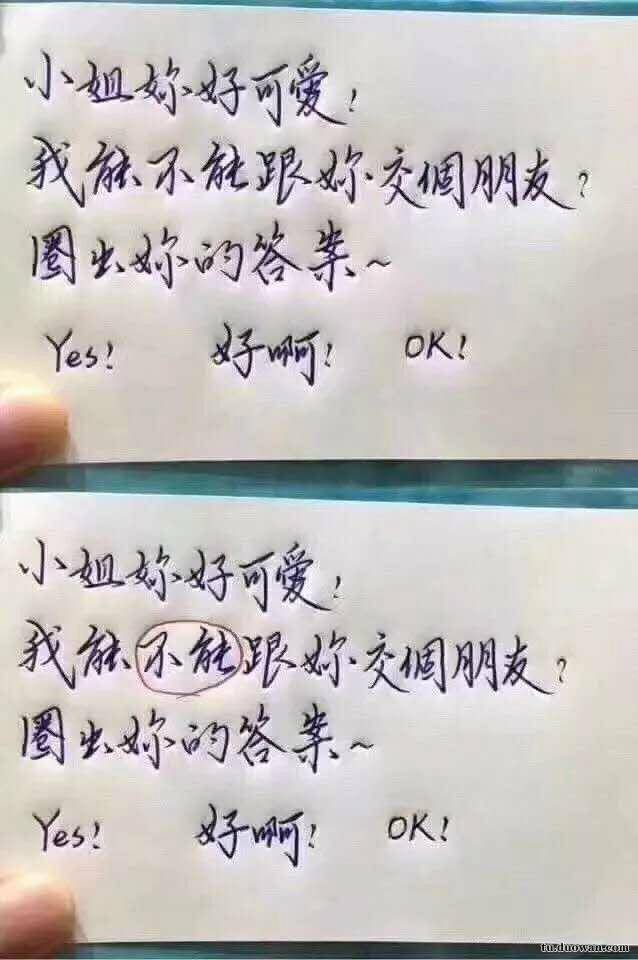 小姐妳好可愛!
我能不能跟妳交個朋友?
圈出妳的答案~
Yes! 好啊! OK!
小姐妳好可愛!
我能不能跟妳交個朋友?
圈出妳的答案~
Yes! 好啊! OK!
tu.duowan.com